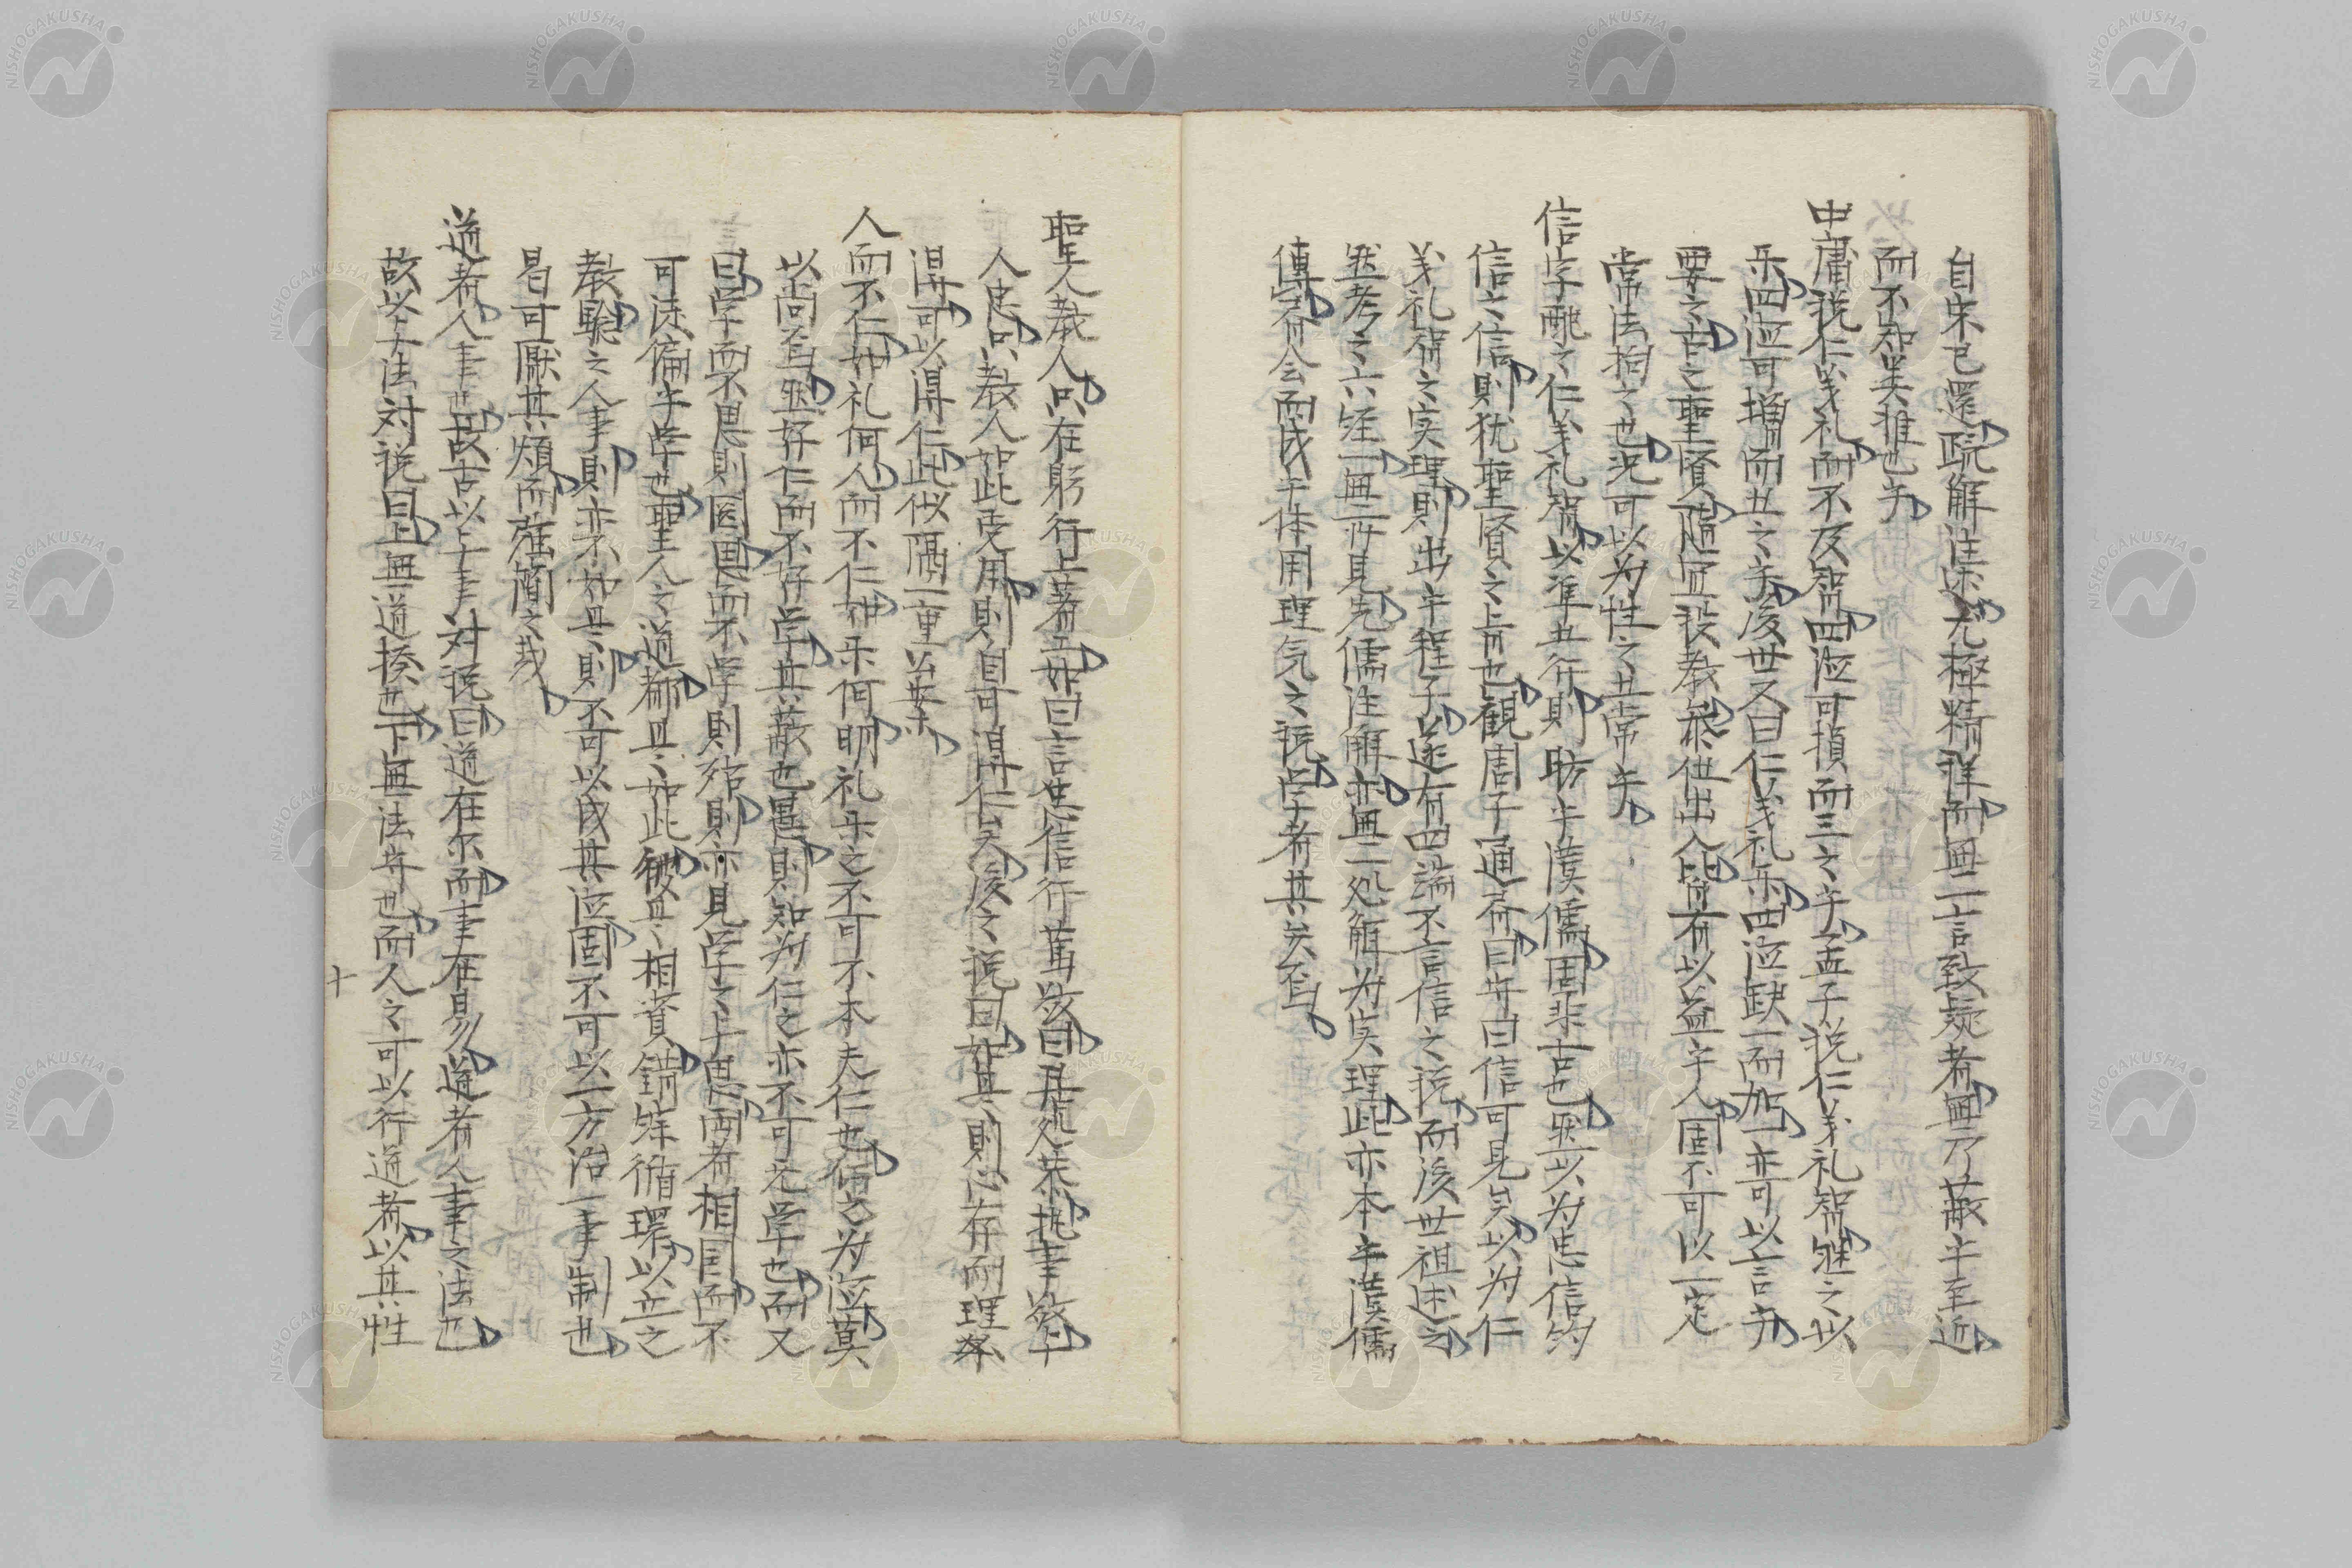 自宋已還疏解注述尤極精詳而無一言致疑者無乃蔽乎至近
而不知類推也乎
中庸説仁義礼而不及智四徳可損而三之乎孟子説仁義礼智継之以
乐四徳可増而五之乎後世又曰仁義礼乐四徳缺一而加一亦可以言乎
要之古之聖賢随宜設教衆他出入皆有以益乎人固不可以一定
常法相之也况可以为性之五常乎
信字配之仁義礼智以准五行則昉乎漢儒固非古也然以为忠信的
信之信則犹聖賢之旨也観周子通書曰五曰信可見矣以为仁
義礼智之实理則出乎程子遂有四端不言信之説而後世祖述之
然考之六経一無所見先儒注解亦無一処觧为实理此亦本乎漢儒
傳會而成乎体用理気之説学者其矣焉
聖人教人只在躬行上著至如曰言忠信行篤敬曰居処恭執事敬与
人忠只教人如此受用則自可得仁矣後之説曰如其則心存而理
得可以得仁此似隔一重公案
人而不仁如礼何人而不仁如乐何明礼乐之不可不本夫仁也如儒各为徳莫
以尚焉然好仁而不好学其蔽也愚則知为仁之亦不可无学也而又
曰学而不思則罔思而不学則殆則亦見学之与思両者相因而不
可徒偏乎学也聖人之道都且々如此彼且々相資錯綜循環以立之
教験之人事則亦不如是則不可以成其徳固不可以一方治一事制也
曷可厭其煩而強簡之哉
道者人事也故古以与事対説曰道在尔而事在易道者人事之法也
故以与法対説曰上無道揆也下無法守也而人之可以行道者以其性
十
NISHOGAKUSHA